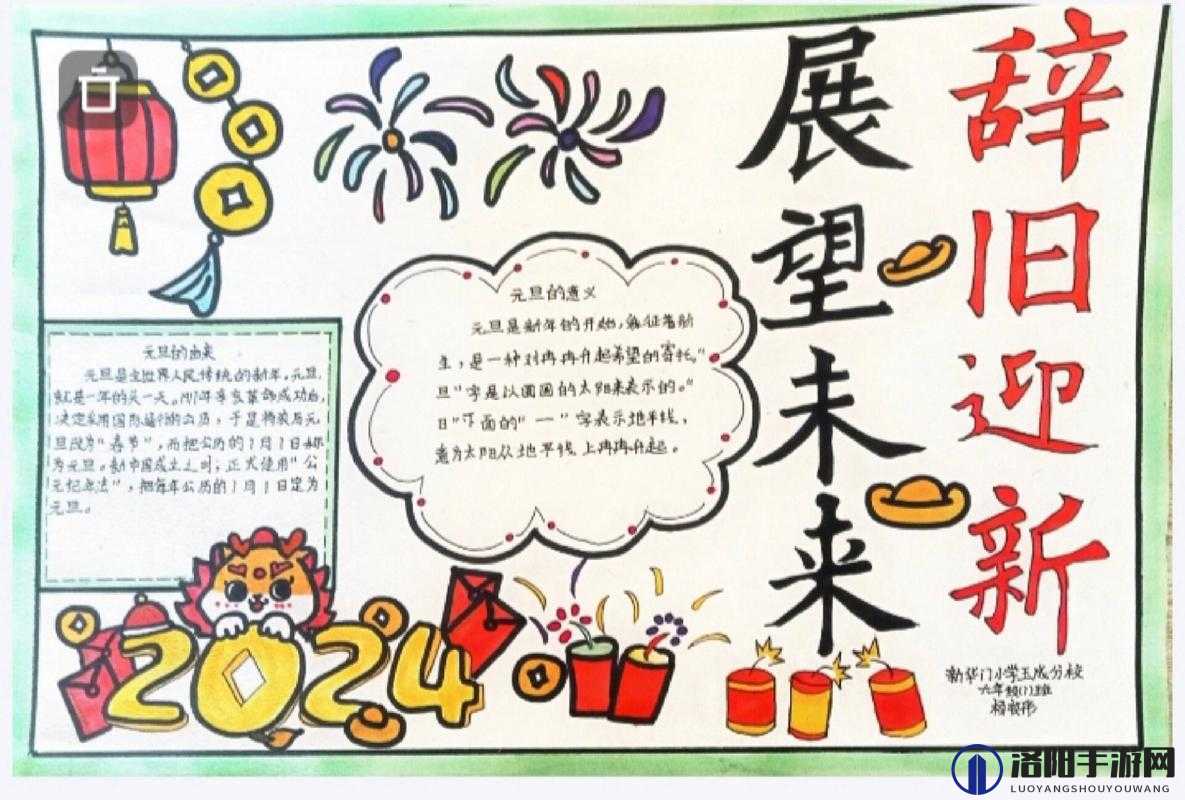 辞旧迎新
展望未来
元旦的意义
元旦是新年的开始,象征着新
生,是一种对冉冉升起希望的寄托。"
旦"字是以圆圆的太阳来表示的。"
日"下面的"一"字表示地平线,
意为太阳从地平线上冉冉升起。
元旦的由来
元旦是全世界人民传统的新年。元旦
就是一年的头一天。1911年辛亥革命成功后,
决定采用国际通行的公历,于是将农历元
旦改为"春节",而把公历的1月1日称
为元旦。新中国成立之时,正式使用"公
元纪年法",把每年公历的1月1日定为
元旦。
2024
新华门小学玉成分校
六年级(1)班
洛阳手游网
LUOYANGSHOUYOUWANG